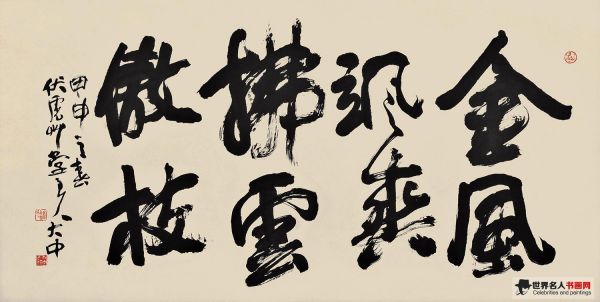 金風
颯爽
拂雲
傲枝
甲申之春
伏虎草堂主人大中
世界名人书画网
Celebrities and paintings